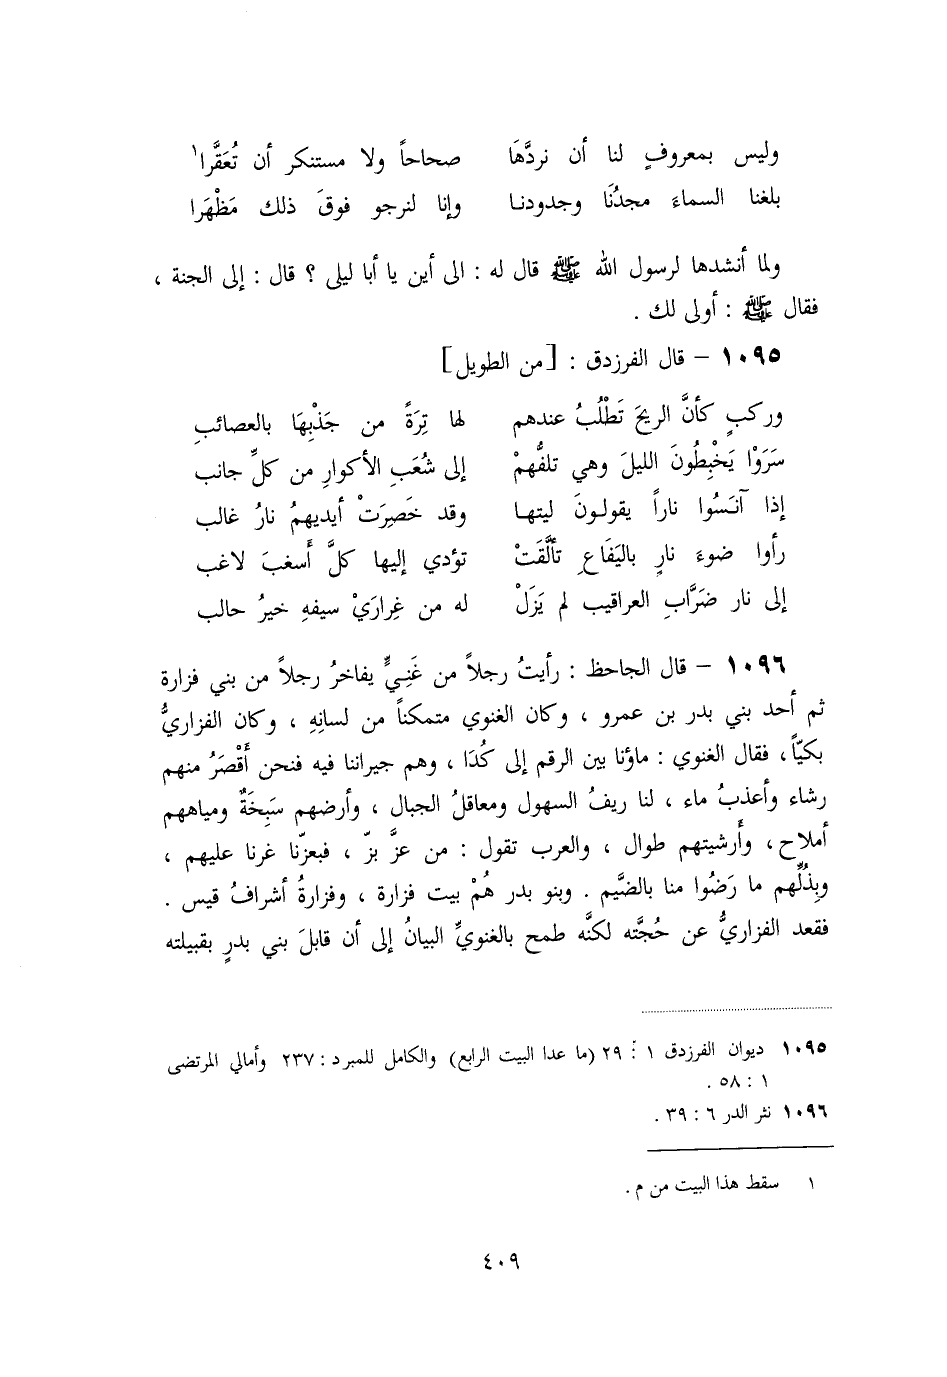 وليس بمعروفٍ لنا أن نردَّهَا صحاحاً ولا مستنكر أن تُعَقَّرا١
بلغنا السماءَ مجدُنَا وجدودنـا وإنا لنرجو فوقَ ذلك مَظْهَرا
ولما أنشدها لرسول الله ﷺ قال له : الى أين يا أبا ليلى ؟ قال : إلى الجنة ،
فقال ﷺ : أولى لك .
١٠٩٥ – قال الفرزدق : [من الطويل]
وركبٍ كأنَّ الريحَ تَطْلُبُ عندهم لها تِرَةً من جَذْبِهَا بالعصائبِ
سَرَوْا يَخْبِطُونَ الليلَ وهي تلفُّهمْ إلى شُعَبِ الأكوارِ من كلِّ جانب
إذا آنَسُوا ناراً يقولـونَ ليتهـا وقد خَصِرَتْ أيديهمُ نارُ غالب
رأوا ضوءَ نارٍ باليَفَاعِ تألَّقَتْ تؤدي إليها كلَّ أَسغبَ لاغب
إلى نار ضَرَّابِ العراقيب لم يَزَلْ له من غِرارَيْ سيفهِ خيرُ حالب
١٠٩٦ – قال الجاحظ : رأيتُ رجلاً من غَنِيٍّ يفاخرُ رجلاً من بني فزارة
ثم أحد بني بدر بن عمرو ، وكان الغنوي متمكناً من لسانِهِ ، وكان الفزاريُّ
بكيّاً، فقال الغنوي : ماؤنا بين الرقم إلى كُدَا ، وهم جيراننا فيه فنحن أَقْصَرُ منهم
رشاء وأعذبُ ماء ، لنا ريفُ السهول ومعاقلُ الجبال ، وأرضهم سَبِخَةٌ ومياههم
أملاح، وأَرشيتهم طوال ، والعرب تقول : من عزَّ بزّ ، فبعزّنا غرنا عليهم ،
وبِذُلِّهم ما رَضُوا منا بالضَّيم . وبنو بدر هُمْ بيت فزارة ، وفزارةُ أشرافُ قيس .
فقعد الفزاريُّ عن حُجَّته لكنَّه طمح بالغنويِّ البيانُ إلى أن قابلَ بني بدرٍ بقبيلته
١٠٩٥ ديوان الفرزدق ١ : ٢٩ (ما عدا البيت الرابع) والكامل للمبرد : ٢٣٧ وأمالي المرتضى
١ : ٥٨ .
١٠٩٦ نثر الدر ٦ : ٣٩ .
١ سقط هذا البيت من م .
٤٠٩